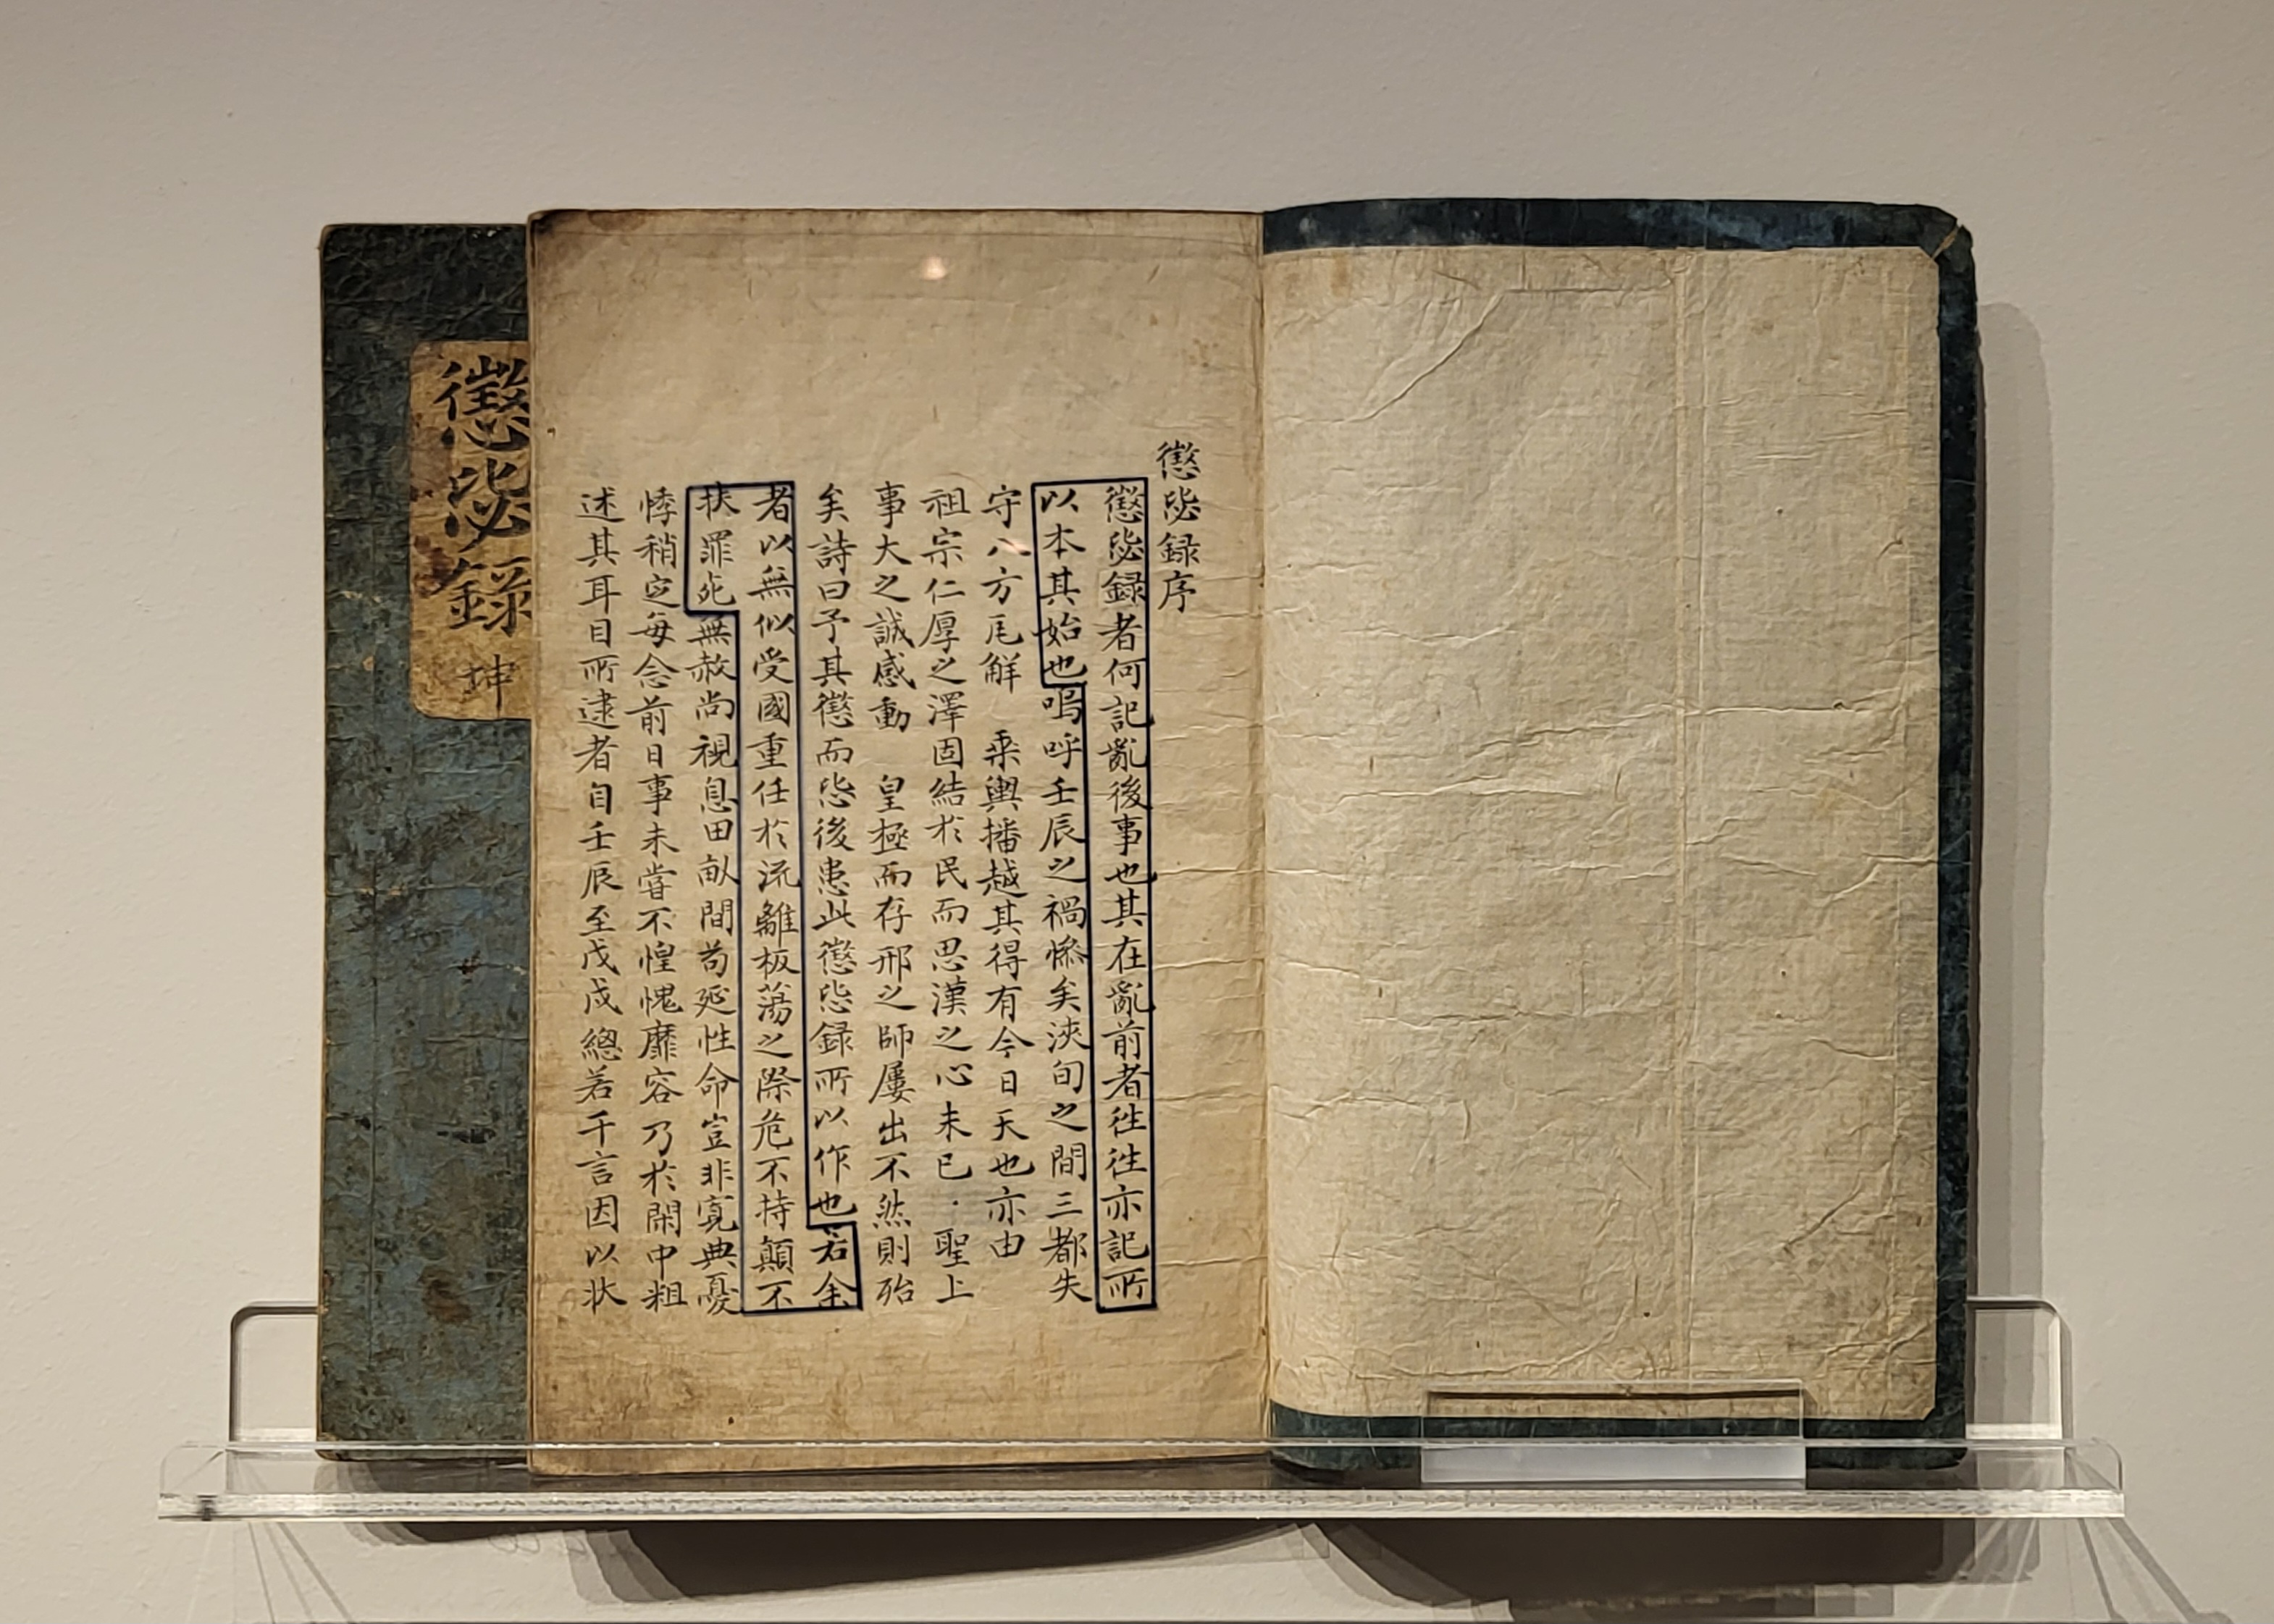 懲毖録序
懲毖録者何記亂後事也其在亂前者徃徃亦記所
以本其始也嗚呼壬辰之禍慘矣浹旬之間三都失
守八方瓦解 乗輿播越其得有今日天也亦由
祖宗仁厚之澤固結於民而思漢之心未已 聖上
事大之誠感動 皇極而存邢之師屢出不然則殆
矣詩曰予其懲而毖後患此懲毖録所以作也若余
者以無似受國重任於流離板蕩之際危不持顛不
扶罪死無赦尚視息田畝間苟延性命豈非寛典憂
悸稍定每念前日事未嘗不惶愧靡容乃於閑中粗
述其耳目所逮者自壬辰至戊戌總若干言因以狀
懲毖録
坤